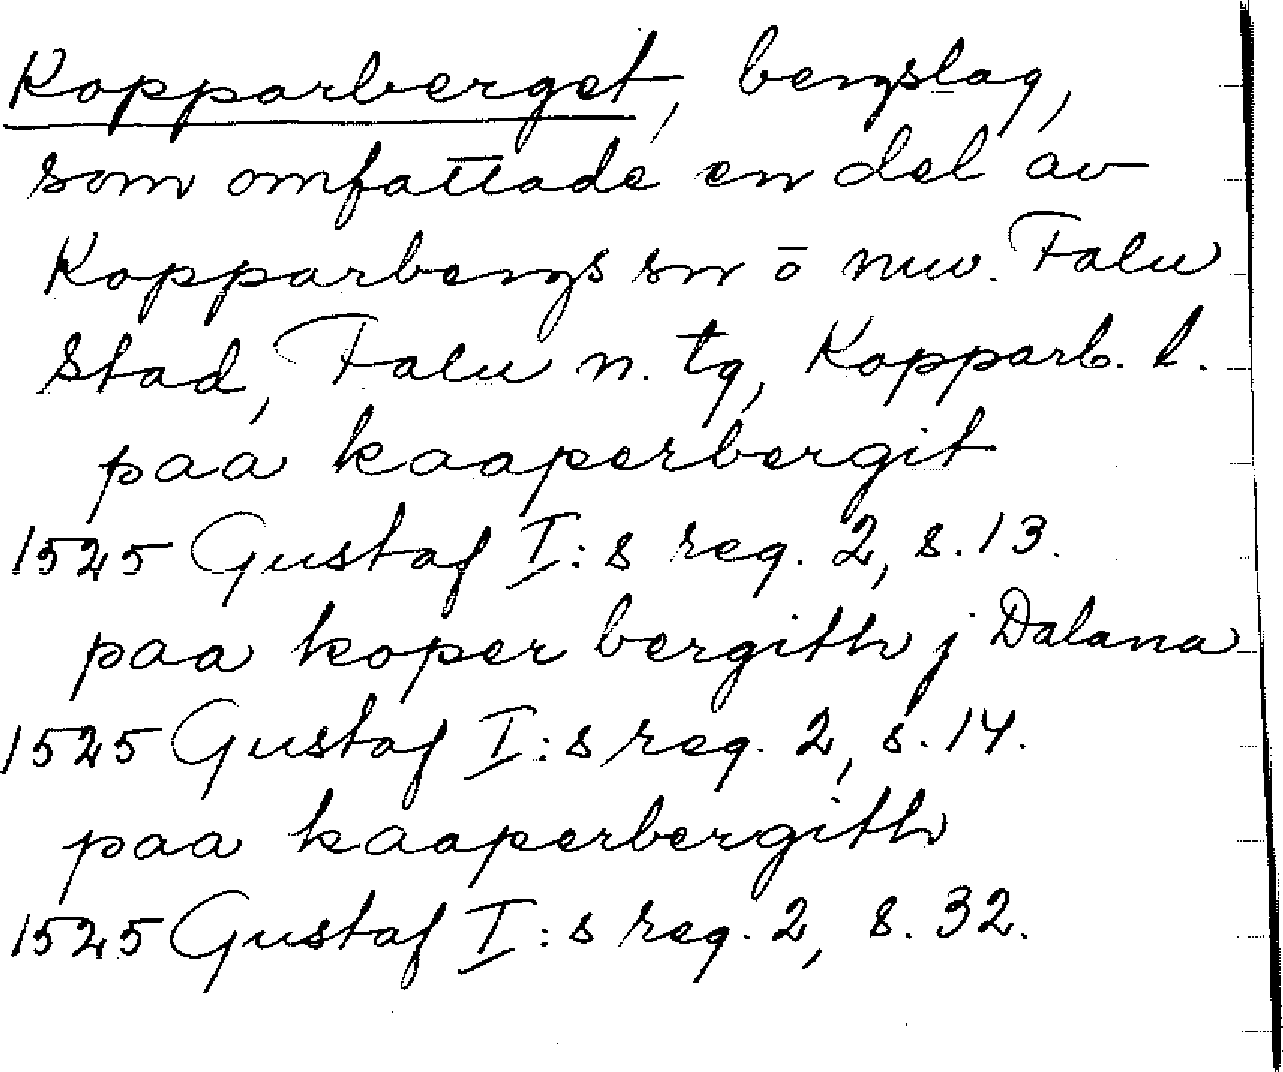 Kopparberget, bergslag,
som omfattade en del av
Kopparbergs sn o nuv. Falu
stad, Falu n. tg, Kopparb. l.
paa kaaperbergit
1525 Gustaf I:s reg. 2, s. 13.
paa koper bergith j Dalana
1525 Gustaf I:s reg. 2, s. 14.
paa kaaperbergith
1525 Gustaf I:s reg. 2, s. 32.